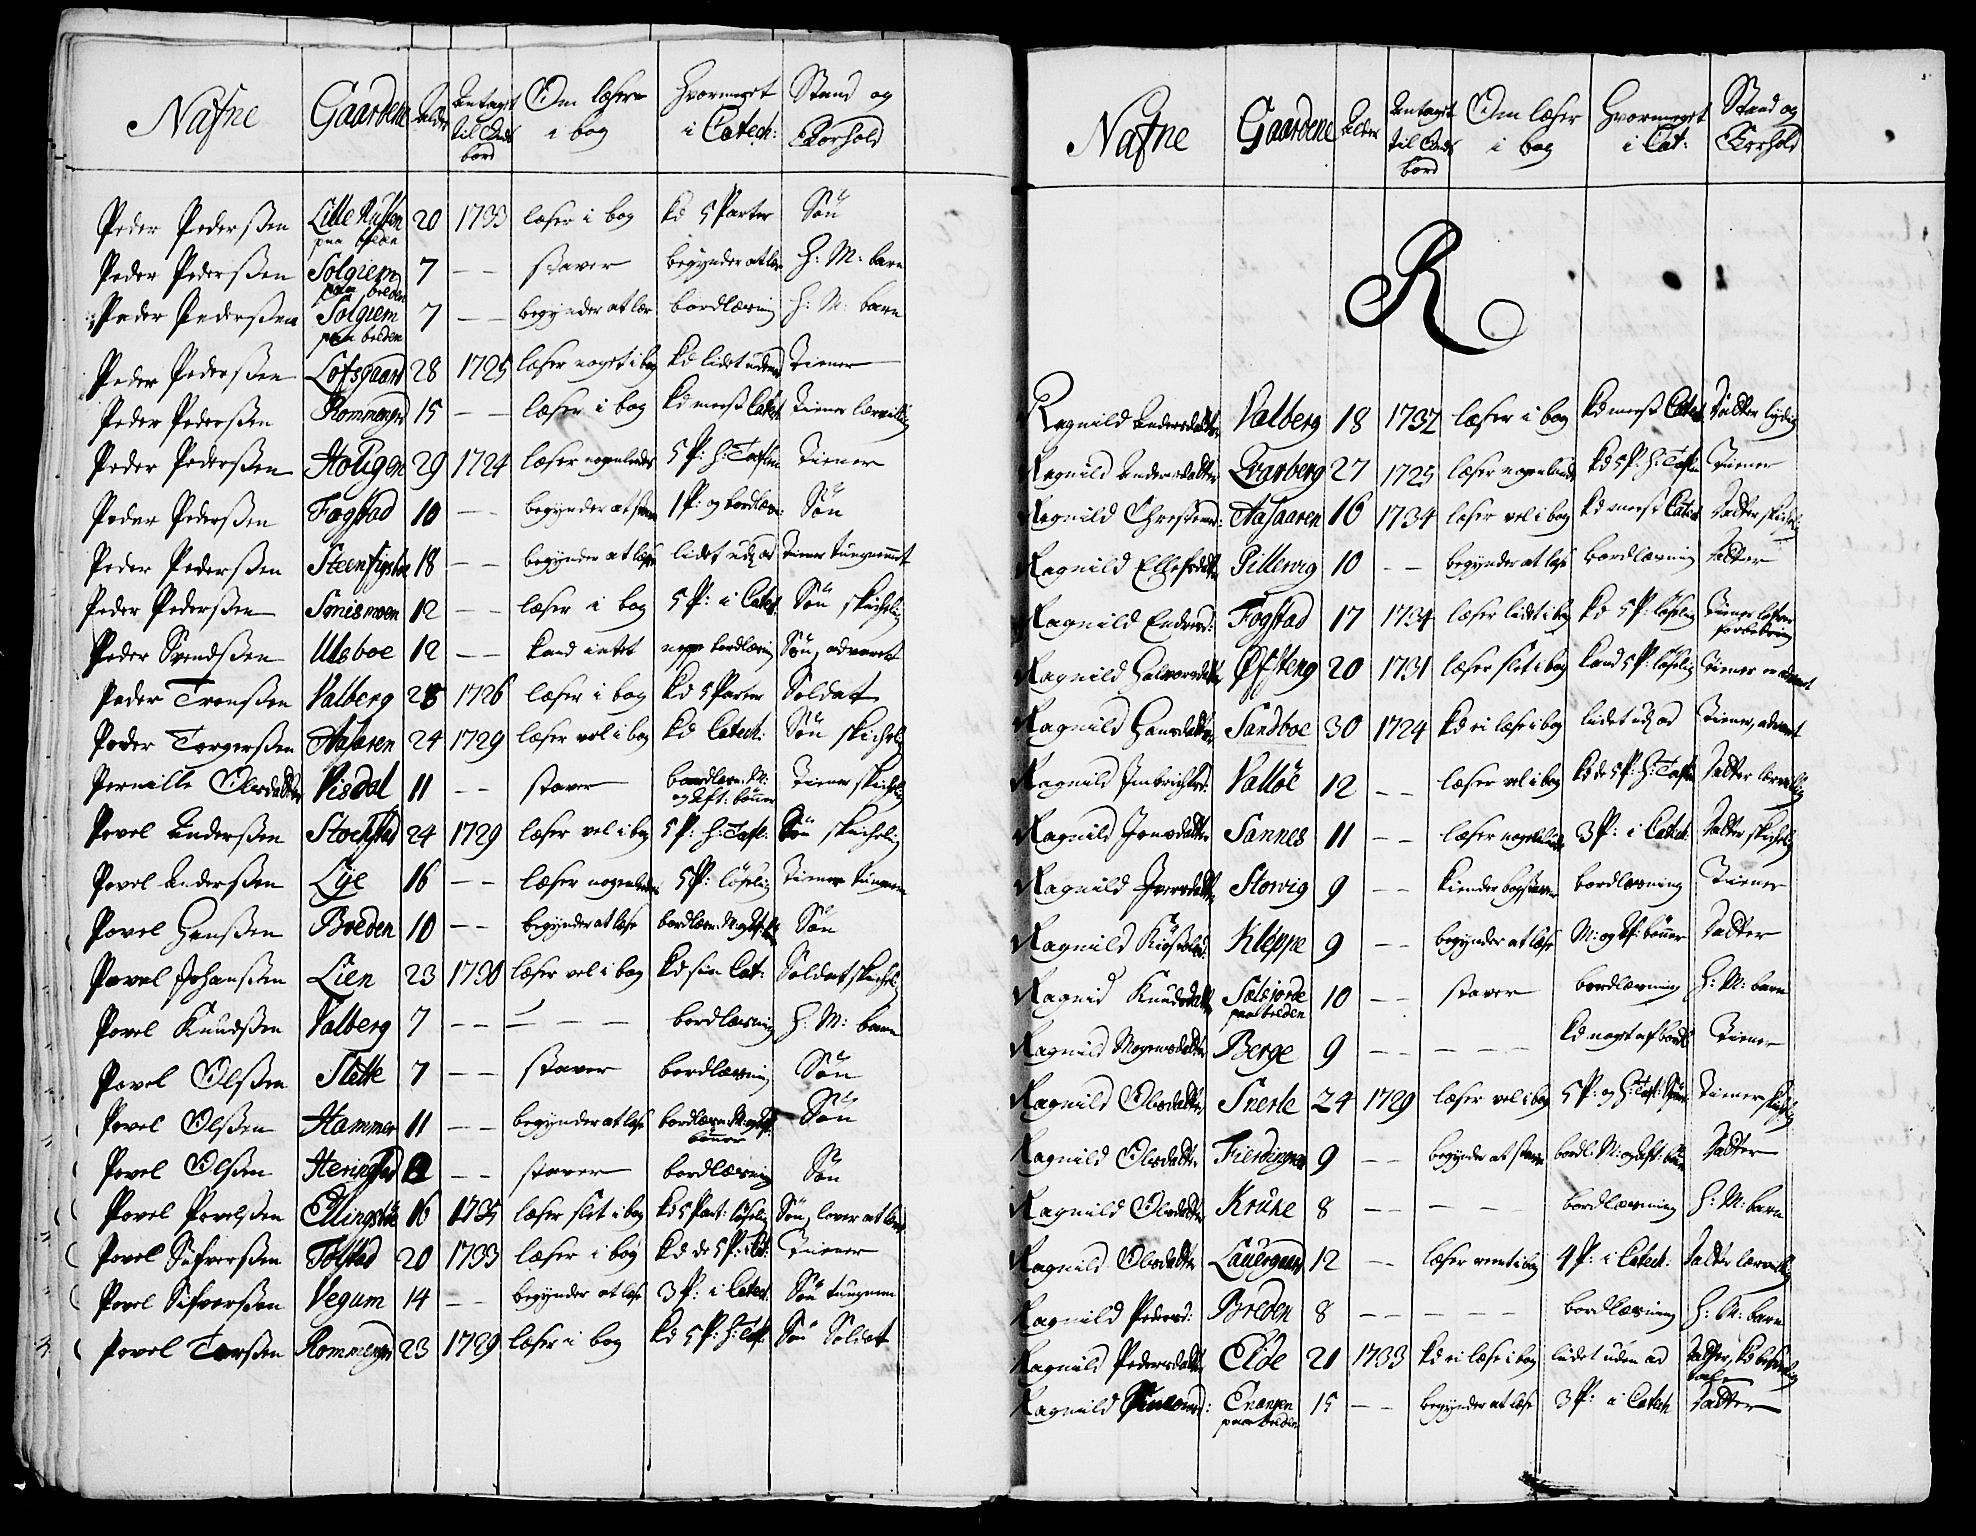 Nafne Gaardene Alder Antaget til Guds bord Om læser i bog Hvormeget i Catech: Stand og Forhold
Peder Pederßen Lille Rusten paa bolden 20 1733 læser i bog kd 5 Parter Søn
Peder Pederßen Solgiem paa bolden 7 — — staver begynder at lær H: M: barn
Peder Pederßen Solgiem paa bolden 7 — — begynder at lær bordlæsning H: M: barn
Peder Pederßen Lofsgaard 28 1725 læser noget i bog kd lidet uden Tiener
Peder Pederßen Rommengrd 15 — — læser i bog kd meest Catech Tiener lærvillig
Peder Pederßen Holigen 29 1724 læser nogenledes 5 P: H: Taflen Tiener
Peder Pederßen Fogstad 10 — — begynder at stave 1 P: og bordlæsn: Søn
Peder Pederßen Steenfigstue 18 — — begynder at læse lidet ud ad Tiener tungnemmet
Peder Pederßen Snrismoen 12 — — læser i bog 5 P: i Catech Søn skichelig
Peder Svendßen Ulsboe 12 — — kand intet nepp bordlæsnig Søn, advaret
Peder Tronßen Valberg 28 1726 læser i bog kd 5 Parter Soldat
Peder Torgerßen Aasaren 24 1729 læser vel i bog kd Catech: Søn skichelig
Pernille Olsdatter Visdal 11 — — staver bordlæsn: M: og Aft: bønner Tiener skichelig
Povel Anderßen Stochstad 24 1729 læser vel i bog 5 P: H: Tafl: Søn skichelig
Povel Anderßen Lye 16 — — læser nogenledes 5 P: løselig Tiener tungnem
Povel Hanßen Breden 10 — — begynder at læse bordlæsn: M: og Aft: bøn Søn
Povel Johanßen Lien 23 1730 læser vel i bog kd sin Cat: Soldat skichel:
Povel Knudßen Valberg 7 — — — — — bordlæsning H: M: barn
Povel Olßen Slette 7 — — staver bordlæsning Søn
Povel Olßen Hammer 11 — — begynder at læse bordlæsn: M: og Aft: bønner Søn
Povel Olßen Heringstad 12 — — staver bordlæsning Søn
Povel Povelßen Ellingsboe 16 1735 læser slet i bog kd 5 Part: løselig Søn, lover at lære
Povel Sifverßen Tolstad 20 1733 læser i bog kd de 5 P: i Cat: Tiener
Povel Sifverßen Vegum 14 — — begynder at læse 3 P: i Catech: Søn tungnem
Povel Torßen Rommengrd 23 1729 læser i bog kd 5 P: H: Tafl: Søn Soldat
Nafne Gaardene Alder Antaget til Guds bord Om læser i bog Hvormeget i Cat: Stand og Forhold
R
Ragnild Andersdatter Valberg 18 1732 læser i bog kd meest Catech Datter lydig
Ragnild Andersdatter Qvarberg 27 1725 læser nogenlunde kd 5 P: H: Taflen Tiener
Ragnild Christend: Aasaaren 16 1734 læser vel i bog kd meest Catech Datter skichelig
Ragnild Ellefsdatter Pillervig 10 — — begynder at læse bordlæsning Datter
Ragnild Endersd: Fogstad 17 1734 læser lidt i bog kd 5 P: løselig Tiener lofver forbedring
Ragnild Halvorsdatter Øfsteng 20 1731 læser slet i bog kand 5 P: løselig Tiener er advaret
Ragnild Hansdatter Sandboe 30 1724 kd ei læse i bog lidet ud ad Tiener, advaret
Ragnild Imbrichtsd: Valløe 12 — — læser vel i bog kd de 5 P: H: Taflen Datter lærvillig
Ragnild Jonsdatter Sannes 11 — — læser nogenlunde 3 P: i Catech: Datter skichelig
Ragnild Iversdatter Storvig 9 — — kiender bogstaver bordlæsning Tiener
Ragnild Kiøstolsd: Kleppe 9 — — begynder at læse M: og Af: bønner Datter
Ragnid Knudsdatter Sælsjorde paa bolden 10 — — staver bordlæsning H: M: barn
Ragnild Mogensdatter Berge 9 — — — — — kd noget af bordl: Tiener
Ragnild Olsdatter Snerle 24 1729 læser vel i bog 5 P: og H: Tafl: Spørs Tiener skichelig
Ragnild Olsdatter Fierdingren 9 — — begynder at stave bordl: M: og Aft: bøn Datter
Ragnild Olsdatter Kruke 8 — — — — — bordlæsning H: M: barn
Ragnild Olsdatter Lauergaard 12 — — læser rent i bog 4 P: i Catech: Datter lærvillig
Ragnild Pedersd: Breden 8 — — — — — bordlæsning H: M: barn
Ragnild Pedersdatter Eide 21 1733 kd ei læse i bog lidet uden ad
Ragnild Simonsd: Enangen paa bolden 15 — — begynder at læse 3 P: i Catech Datter